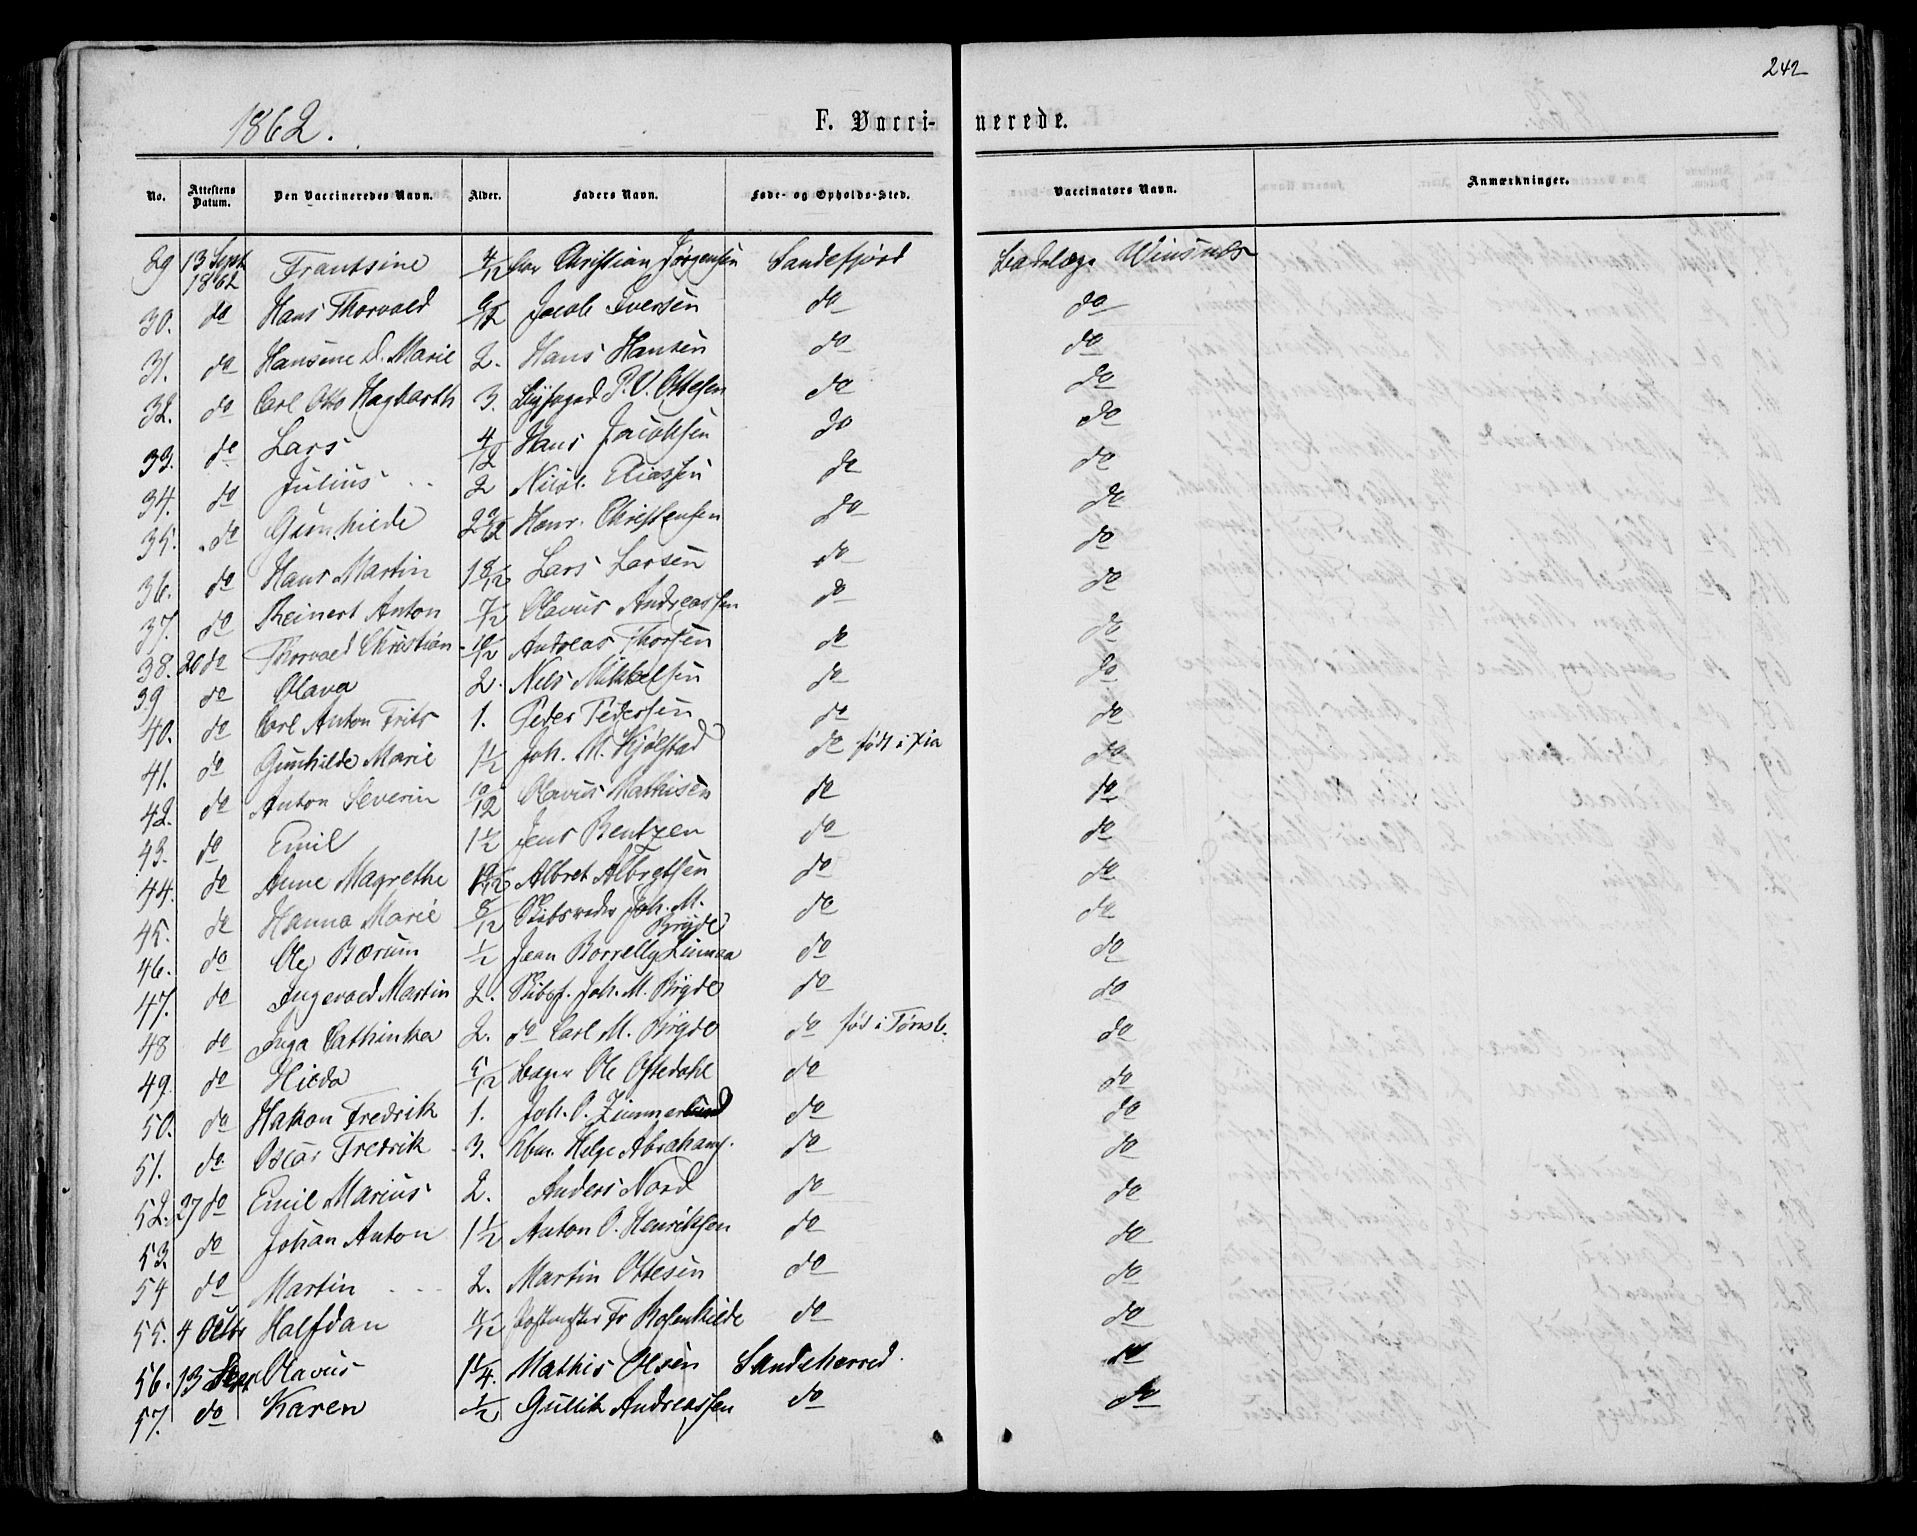 242
1862.
F. Vaccinerede.
No. Attestens Datum. Den Vaccineredes Navn. Alder. Faders Navn. Føde- og Opholds-Sted. Vaccinators Navn. Anmærkninger.
29 13 Sept 1862 Frantsine 4/12 Christian Jørgensen Sandefjord Badelæge Winsnes
30. do Hans Thorvald 6/12 Jacob Iversen do do
31. do Hansine D. Marie 2. Hans Hansen do do
32. do Carl Otto Hagbarth 3. Byfoged P. V. Ottesen do do
33. do Lars 4/12 Hans Jacobsen do do
34. do Julius 2 Nicol. Eliassen do do
35. do Gunhilde 2 2/12 Hanr. Christensen do do
36. do Hans Martin 1 8/12 Lars Larsen do do
37. do Reinert Anton 7/12 Olavus Andreassen do do
38. 20 do Thorvald Christian 10/12 Andreas Thorsen do do
39 do Olava 2. Niels Mikkelsen do do
40. do Carl Anton Frits 1. Peder Pedersen do do
41. do Gunhilde Marie 1 1/2 Joh. M. Kjølstad do født i Xia do
42. do Anton Severin 10/12 Olavus Mathisen do do
43. do Emil 1 1/2 Jens Bentzen do do
44. do Anne Magrethe Albret Albrgtsen do do
45. do Hanna Marie 8/12 Skibsreder Joh. M. Bryde do do
46. do Ole Bærum 1/2 Jean Borrelly Linnaa do do
47. do Ingevald Martin 2. Skibsf. Joh. M. Bryde do do
48 do Inga Cathinka 2. do Carl M. Bryde do fød i Tønsb. do
49. do Hilda 5/12 Bager Ole Oftedahl do do
50. do Hakon Fredrik 1. Joh. O. Zimmerlund do do
51. do Oscar Fredrik 3. Kbm. Helge Abrahams. do do
52. 27 do Emil Marius 2. Anders Nord do do
53. do Johan Anton 1 1/2 Anton O. Henriksen do do
54 do Martin 2. Martin Ottesen do do
55. 4 Octbr Halfdan 4/12 Postmester Fr Rosenkilde do do
56. 13 Sept Olavus 1 1/4. Mathis Olsen Sandeherred. do
57. do Karen 1/2 Gullik Andreassen do do